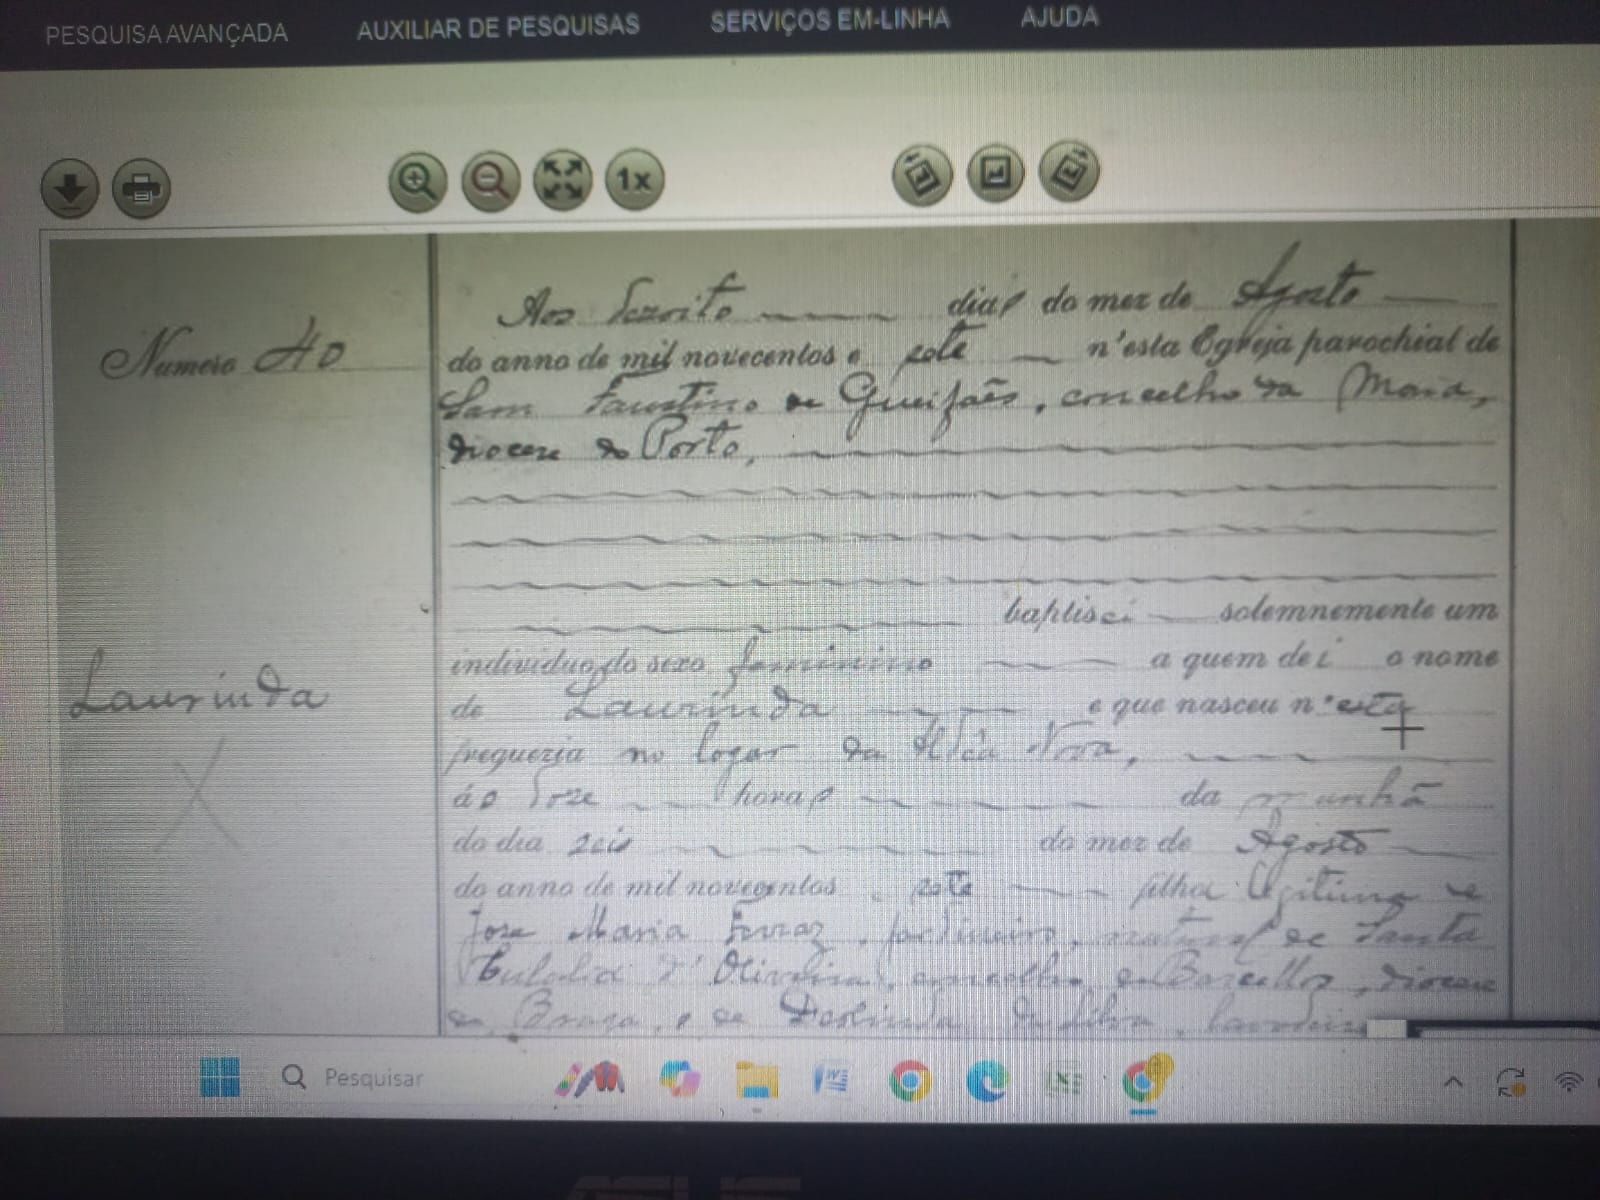 PESQUISA AVANÇADA AUXILIAR DE PESQUISAS SERVIÇOS EM-LINHA AJUDA
1x
Numero 40
Aos dezoito dias do mez de Agosto
do anno de mil novecentos e sete n'esta Egreja parochial de
Sam Faustino de Gueifães, concelho da Maia,
diocese do Porto,
baptisei solemnemente um
individuo do sexo feminino a quem dei o nome
Laurinda
de Laurinda e que nasceu n'esta
freguezia no logar da Aldêa Nova,
ás doze horas da manhã
do dia seis do mez de Agosto
do anno de mil novecentos sete filha legitima de
Jose Maria Ferraz, natural de Santa
Eulalia d'Oliveira, concelho de Barcellos, diocese
de Braga, e de Deolinda da Silva,
Pesquisar